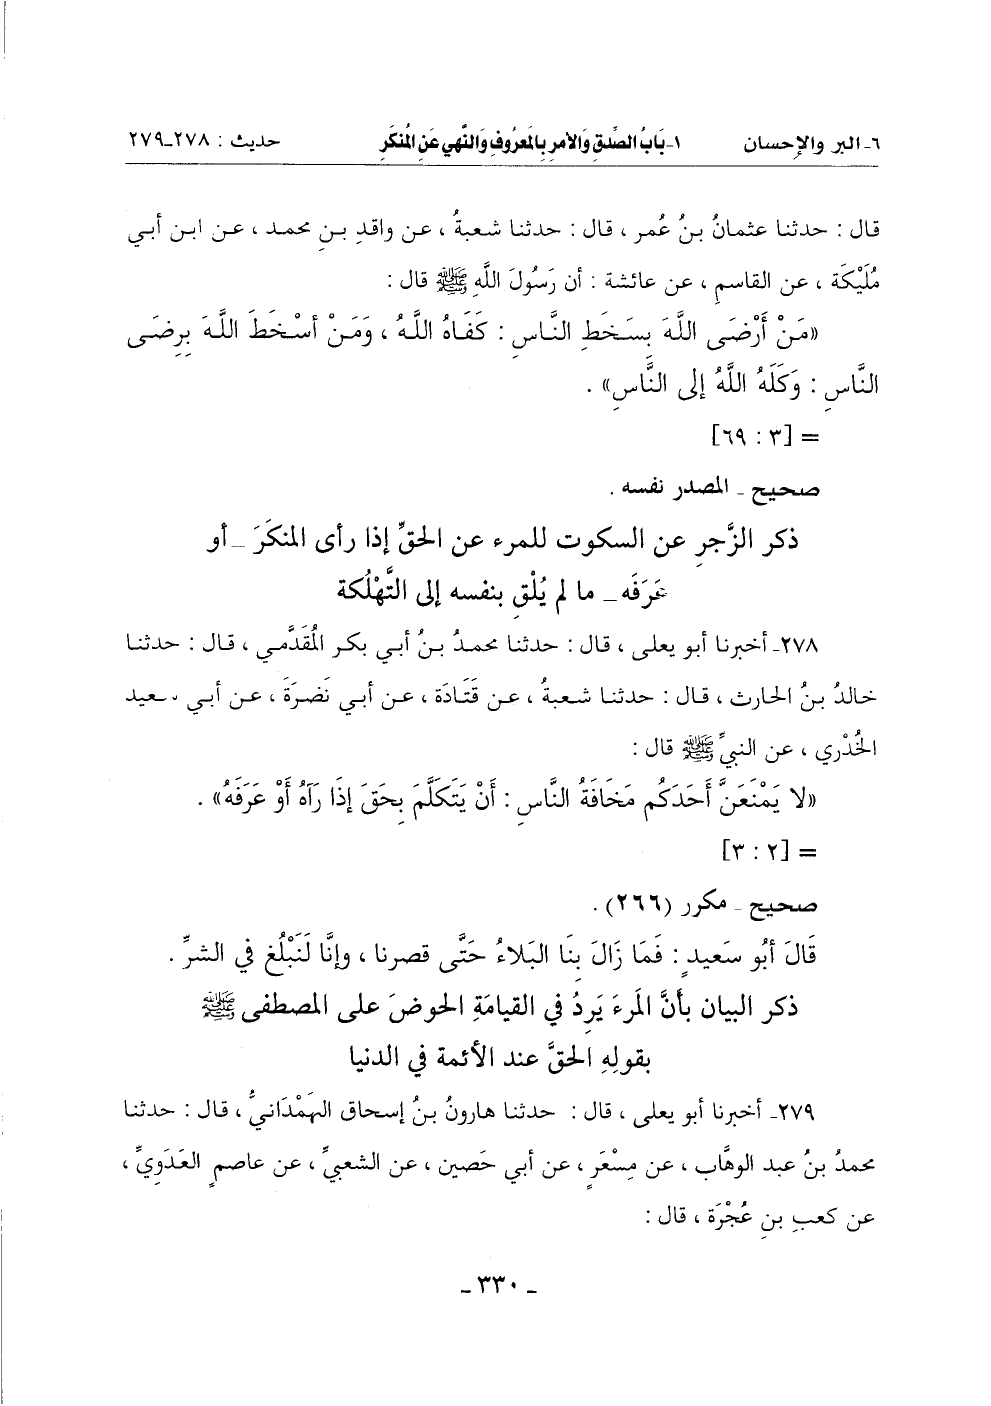 ٦ـ البر والإحسان ١ـ بَابُ الصِّدْقِ وَالأَمرِ بِالمَعرُوفِ وَالنَّهي عَنِ المُنكَرِ حديث : ٢٧٨ـ٢٧٩
قال : حدثنا عثمانُ بنُ عُمر ، قال : حدثنا شعبةُ ، عن واقدِ بنِ محمد ، عن ابن أبي
مُلَيْكَة ، عن القاسمِ ، عن عائشة : أن رَسُولَ اللَّهِ ﷺ قال :
«مَنْ أَرْضَى اللَّهَ بِسَخَطِ النَّاسِ : كَفَاهُ اللَّهُ ، وَمَنْ أَسْخَطَ اللَّهَ بِرِضَى
النَّاسِ : وَكَلَهُ اللَّهُ إلى النَّاسِ» .
= [٣ : ٦٩]
صحيح ـ المصدر نفسه .
ذكر الزَّجرِ عن السكوت للمرء عن الحقِّ إذا رأى المنكَرَ ـ أو
عَرَفَه ـ ما لم يُلْقِ بنفسه إلى التَّهْلُكة
٢٧٨ـ أخبرنا أبو يعلى ، قال : حدثنا محمدُ بنُ أبي بكر المُقَدَّمي ، قال : حدثنا
خالدُ بنُ الحارث ، قال : حدثنا شعبةُ ، عن قَتَادَة ، عن أبي نَضرَةَ ، عن أبي سعيد
الخُدْري ، عن النبيِّ ﷺ قال :
«لا يَمْنَعَنَّ أَحَدَكُم مَخَافَةُ النَّاسِ : أَنْ يَتَكَلَّمَ بِحَقَ إذَا رَآهُ أَوْ عَرَفَهُ» .
= [٢ : ٣]
صحيح ـ مكرر (٢٦٦) .
قَالَ أَبُو سَعِيدٍ : فَمَا زَالَ بِنَا البَلاءُ حَتَّى قصرنا ، وإنَّا لَنَبْلُغ في الشرِّ .
ذكر البيان بأنَّ المَرءَ يَرِدُ في القيامَةِ الحوضَ على المصطفى ﷺ
بقولِهِ الحقَّ عند الأئمة في الدنيا
٢٧٩ـ أخبرنا أبو يعلى ، قال : حدثنا هارونُ بنُ إسحاق الهَمْدَانيُّ ، قال : حدثنا
محمدُ بنُ عبد الوهَّاب ، عن مِسْعَرٍ ، عن أبي حَصين ، عن الشعبيِّ ، عن عاصمٍ العَدَويِّ ،
عن كعبِ بنِ عُجْرَة ، قال :
ـ ٣٣٠ ـ